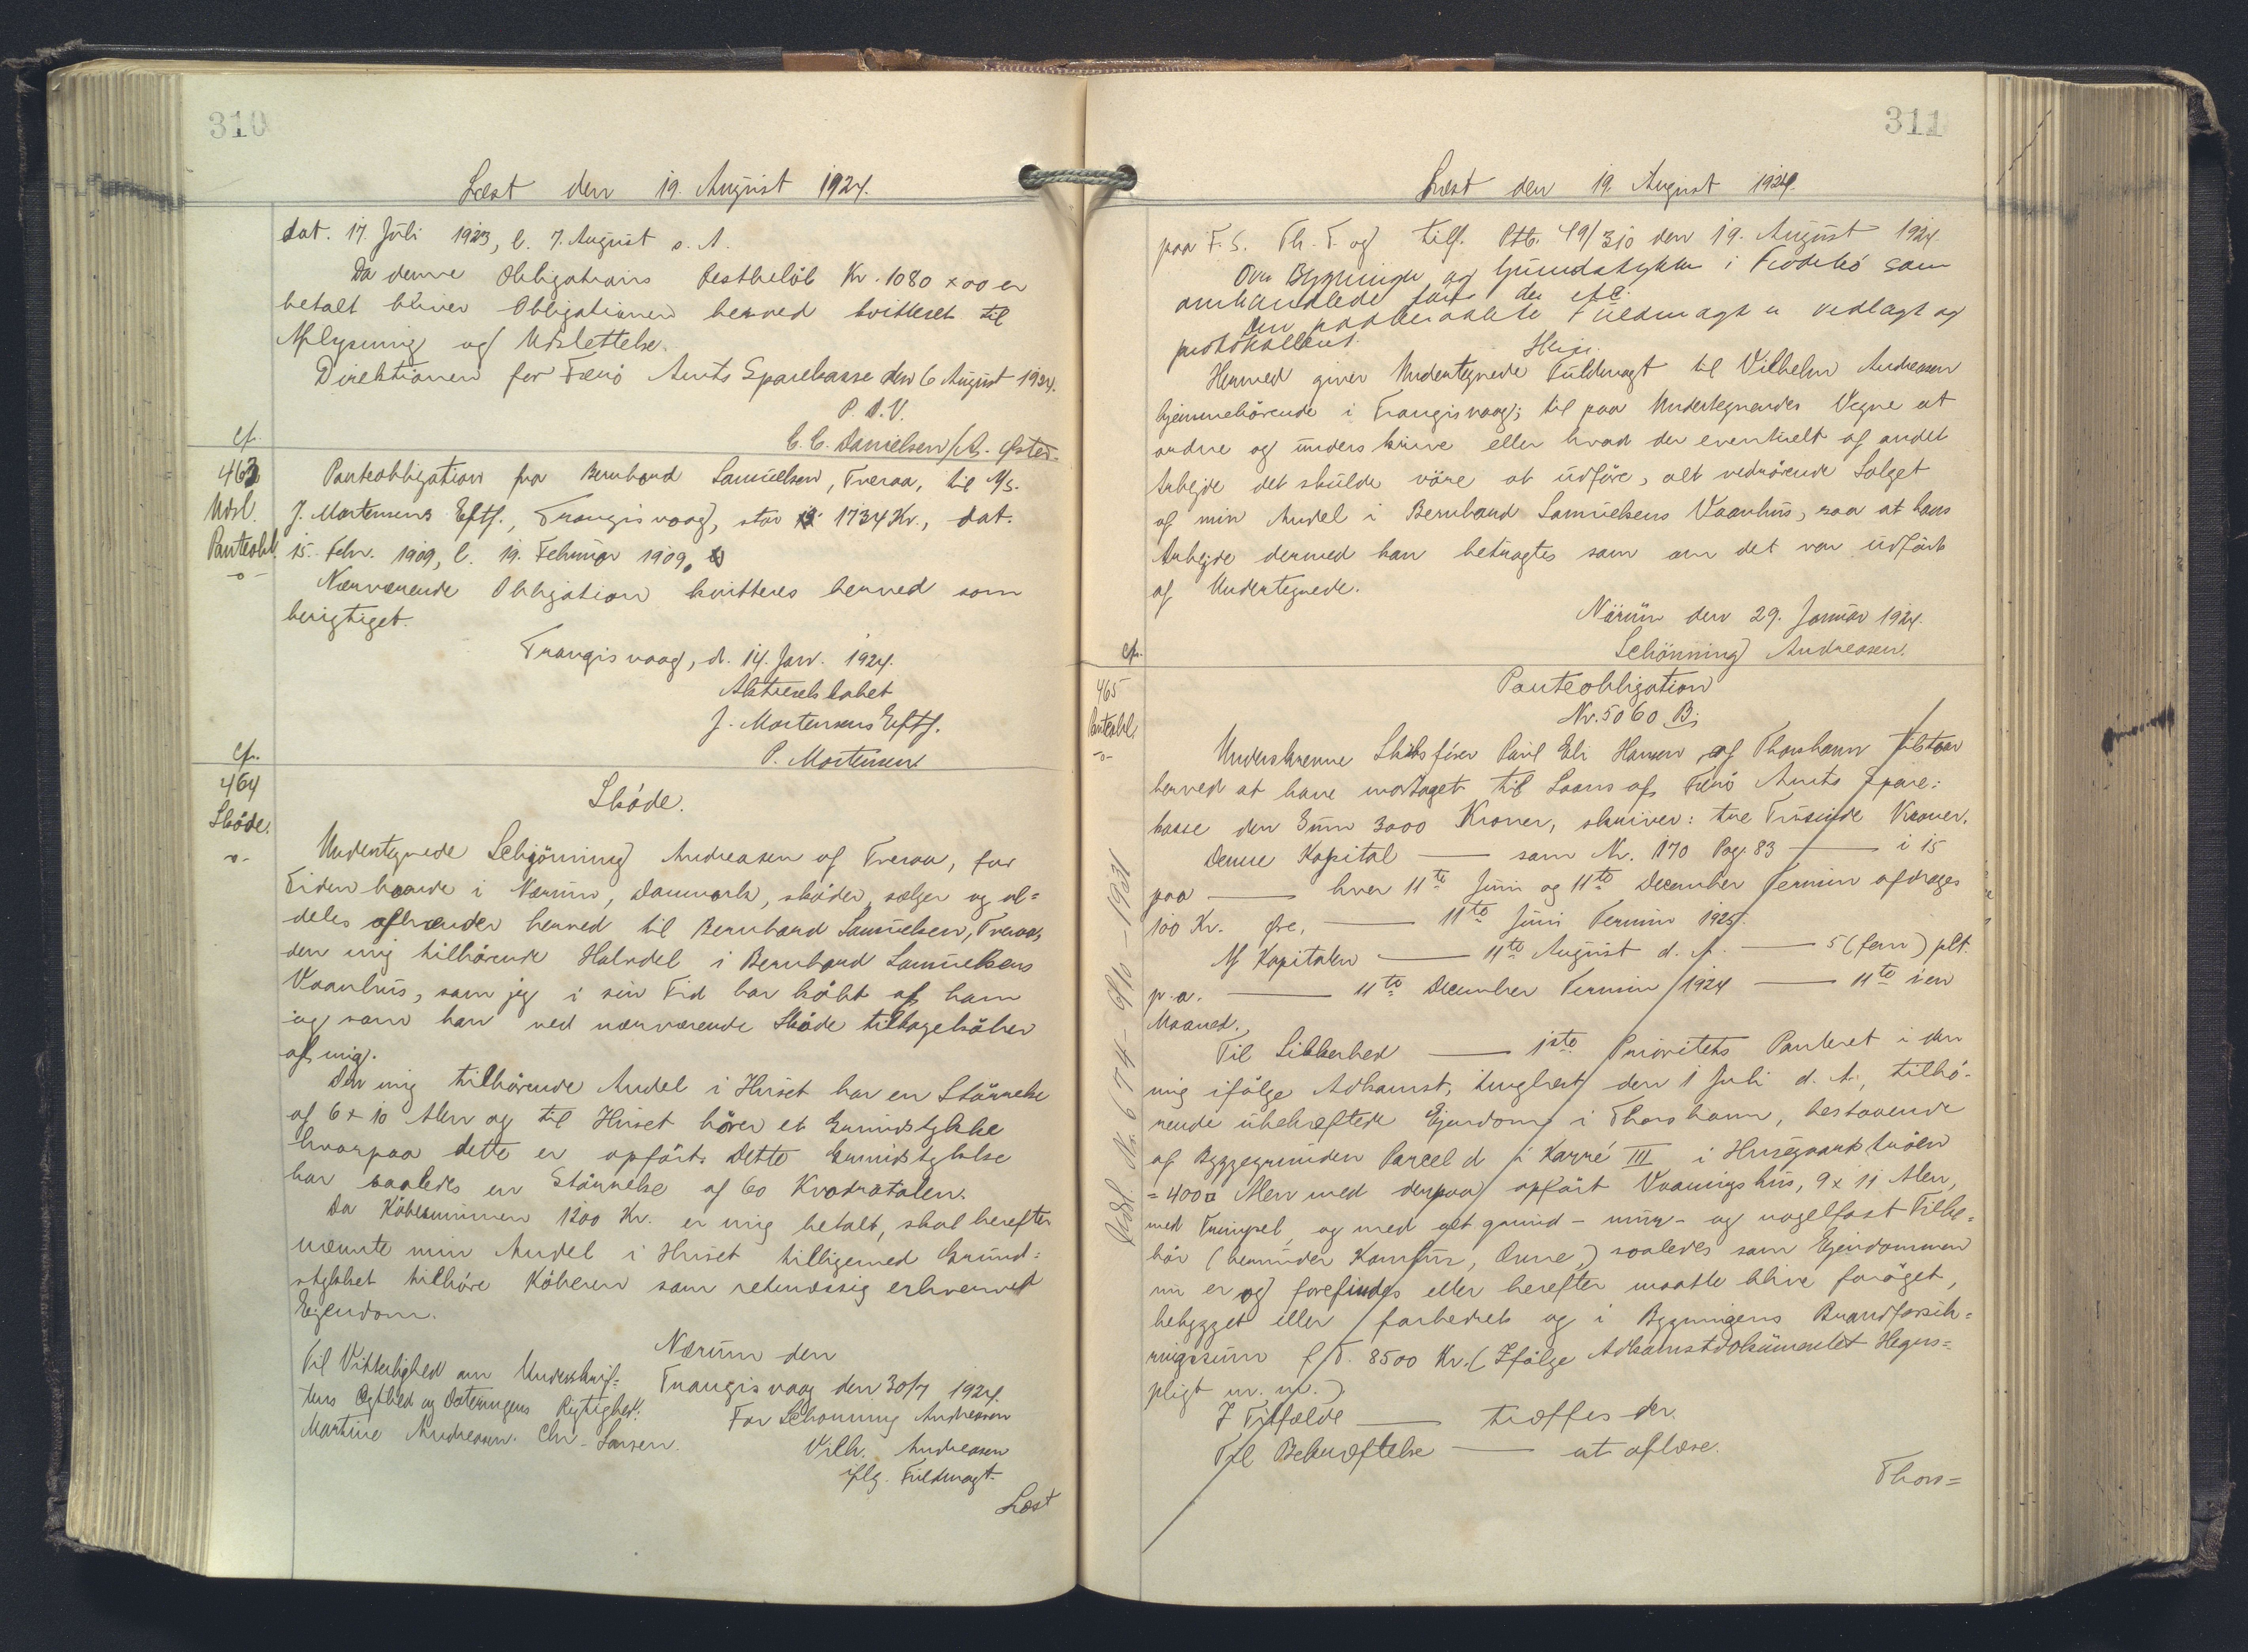 310
Læst den 19. August 1924.
dat. 17. Juli 1923, l. 7. August s. A.
Da denne Obligations Restbeløb Kr. 1080 x 00 er
betalt bliver Obligationen herved kvitteret til
Aflysning og Udslettelse.
Direktionen for Færö Amts Sparekasse den 6 August 1924.
P. D. V.
C. C. Danielsen/
cfr.
463
Udsl.
Panteobl.
-o-
Panteobligation fra Bernhard Samuelsen, Tveraa, til A/S.
J. Mortensens Eftf., Trangisvaag, stor 1734 Kr., dat.
15. Febr. 1909, l. 19. Februar 1909.
Nærværende Obligation kvitteres herved som
berigtiget.
Trangisvaag, d. 14. Jan. 1924.
Aktieselskabet
J. Mortensens Eftf.
P. Mortensen
cfr.
464
Sköde.
-o-
Sköde.
Undertegnede Schjönning Andreasen af Tveraa, for
Tiden boende i Nærum, Danmark, sköder, sælger og al=
deles afhænder herved til Bernhard Samuelsen, Tveraa,
den mig tilhörende Halvdel i Bernhard Samuelsens
Vaanhus, som jeg i sin Tid har köbt af ham
og som han ved nærværende Sköde tilbageköber
af mig.
Den mig tilhörende Andel i Huset har en Störrelse
af 6 x 10 Alen og til Huset hörer et Grundstykke
hvorpaa dette er opfört. Dette Grundstykke
har saaledes en Störrelse af 60 Kvadratalen.
Da Köbesummen 1200 Kr. er mig betalt, skal herefter
nævnte min Andel i Huset tilligemed Grund=
stykket tilhöre Köberen som retmæssig erhvervet
Ejendom.
Nærum den
Til Vitterlighed om Underskrif=
tens Ægthed og Dateringens Rigtighed:
Martine Andreasen. Chr. Larsen.
Trangisvaag den 30/7 1924.
For Schönning Andreasen
Vilh. Andreasen
iflg. Fuldmagt.
Læst
311
Læst den 19. August 1924.
paa F. S. Th. T. og tilf. Ptb. 49/310 den 19. August 1924.
Over Bygningen og Grundstykke i som
omhandlede etc.
Den paaberaabte Fuldmagt er vedlagt og
protokolleret.
Hermed giver Undertegnede Fuldmagt til Vilhelm Andreasen
hjemmehörende i Trangisvaag; til paa Undertegnedes Vegne at
ordne og underskrive eller hvad der eventuelt af andet
Arbejde det skulde väre at udföre, alt vedrörende Salget
af min Andel i Bernhard Samuelsens Vaanhus, saa at hans
Arbejde dermed kan betragtes som om det var udfört
af Undertegnede.
Närum den 29. Januar 1924.
Schönning Andreasen.
cfr.
465
Panteobl.
-o-
Panteobligation
Nr. 5060 B.
Underskrevne Skibsförer Poul Eli Hansen af Thorshavn tilstaar
herved at have modtaget til Laans af Færö Amts Spare=
kasse den Sum 3000 Kroner, skriver: tre Tusinde Kroner.
Denne Kapital —— som Nr. 170 Pag. 83 —— i 15
paa —— hver 11te Juni og 11te December Termin afdrages
100 Kr. Øre, —— 11te Juni Termin 1925.
Af Kapitalen —— 11te August d. A. —— 5 (fem) pCt.
p. a. —— 11te December Termin 1924 —— 11te i en
Maaned.
Til Sikkerhed —— 1ste Prioritets Panteret i den
mig ifölge Adkomst, tinglæst den 1 Juli d. A., tilhö-
rende ubehæftede Ejendom i Thorshavn, bestaaende
af Byggegrunden Parcel d i Karré III i Husegaardströen
= 400 □ Alen med derpaa opfört Vaaningshus, 9 x 11 Alen,
med Trempel, og med alt grund- mur- og nagelfast Tilbe=
hör (herunder Komfur, Ovne,) saaledes som Ejendommen
nu er og forefindes eller herefter maatte blive foröget,
bebygget eller forbedret og i Bygningens Brandforsik=
ringssum f. T. 8500 Kr. (Ifölge Adkomstdokumentet Hegns=
pligt m. m.)
I Tilfælde —— træffes der.
Til Bekræftelse —— at aflæse.
Thors=
Udsl. Nr. 674 - 6/10 - 1931